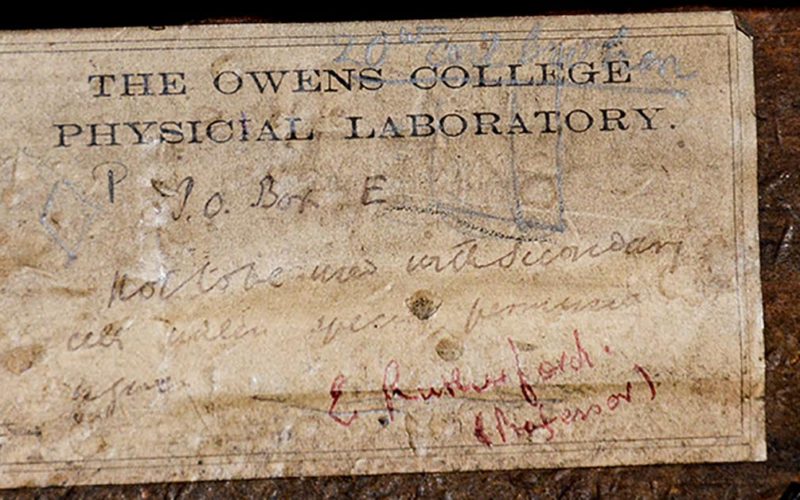 THE OWENS COLLEGE
PHYSICIAL LABORATORY.
P P.O. Box E
Not to be used with secondary
cells unless special permission
E Rutherford.
(Professor)